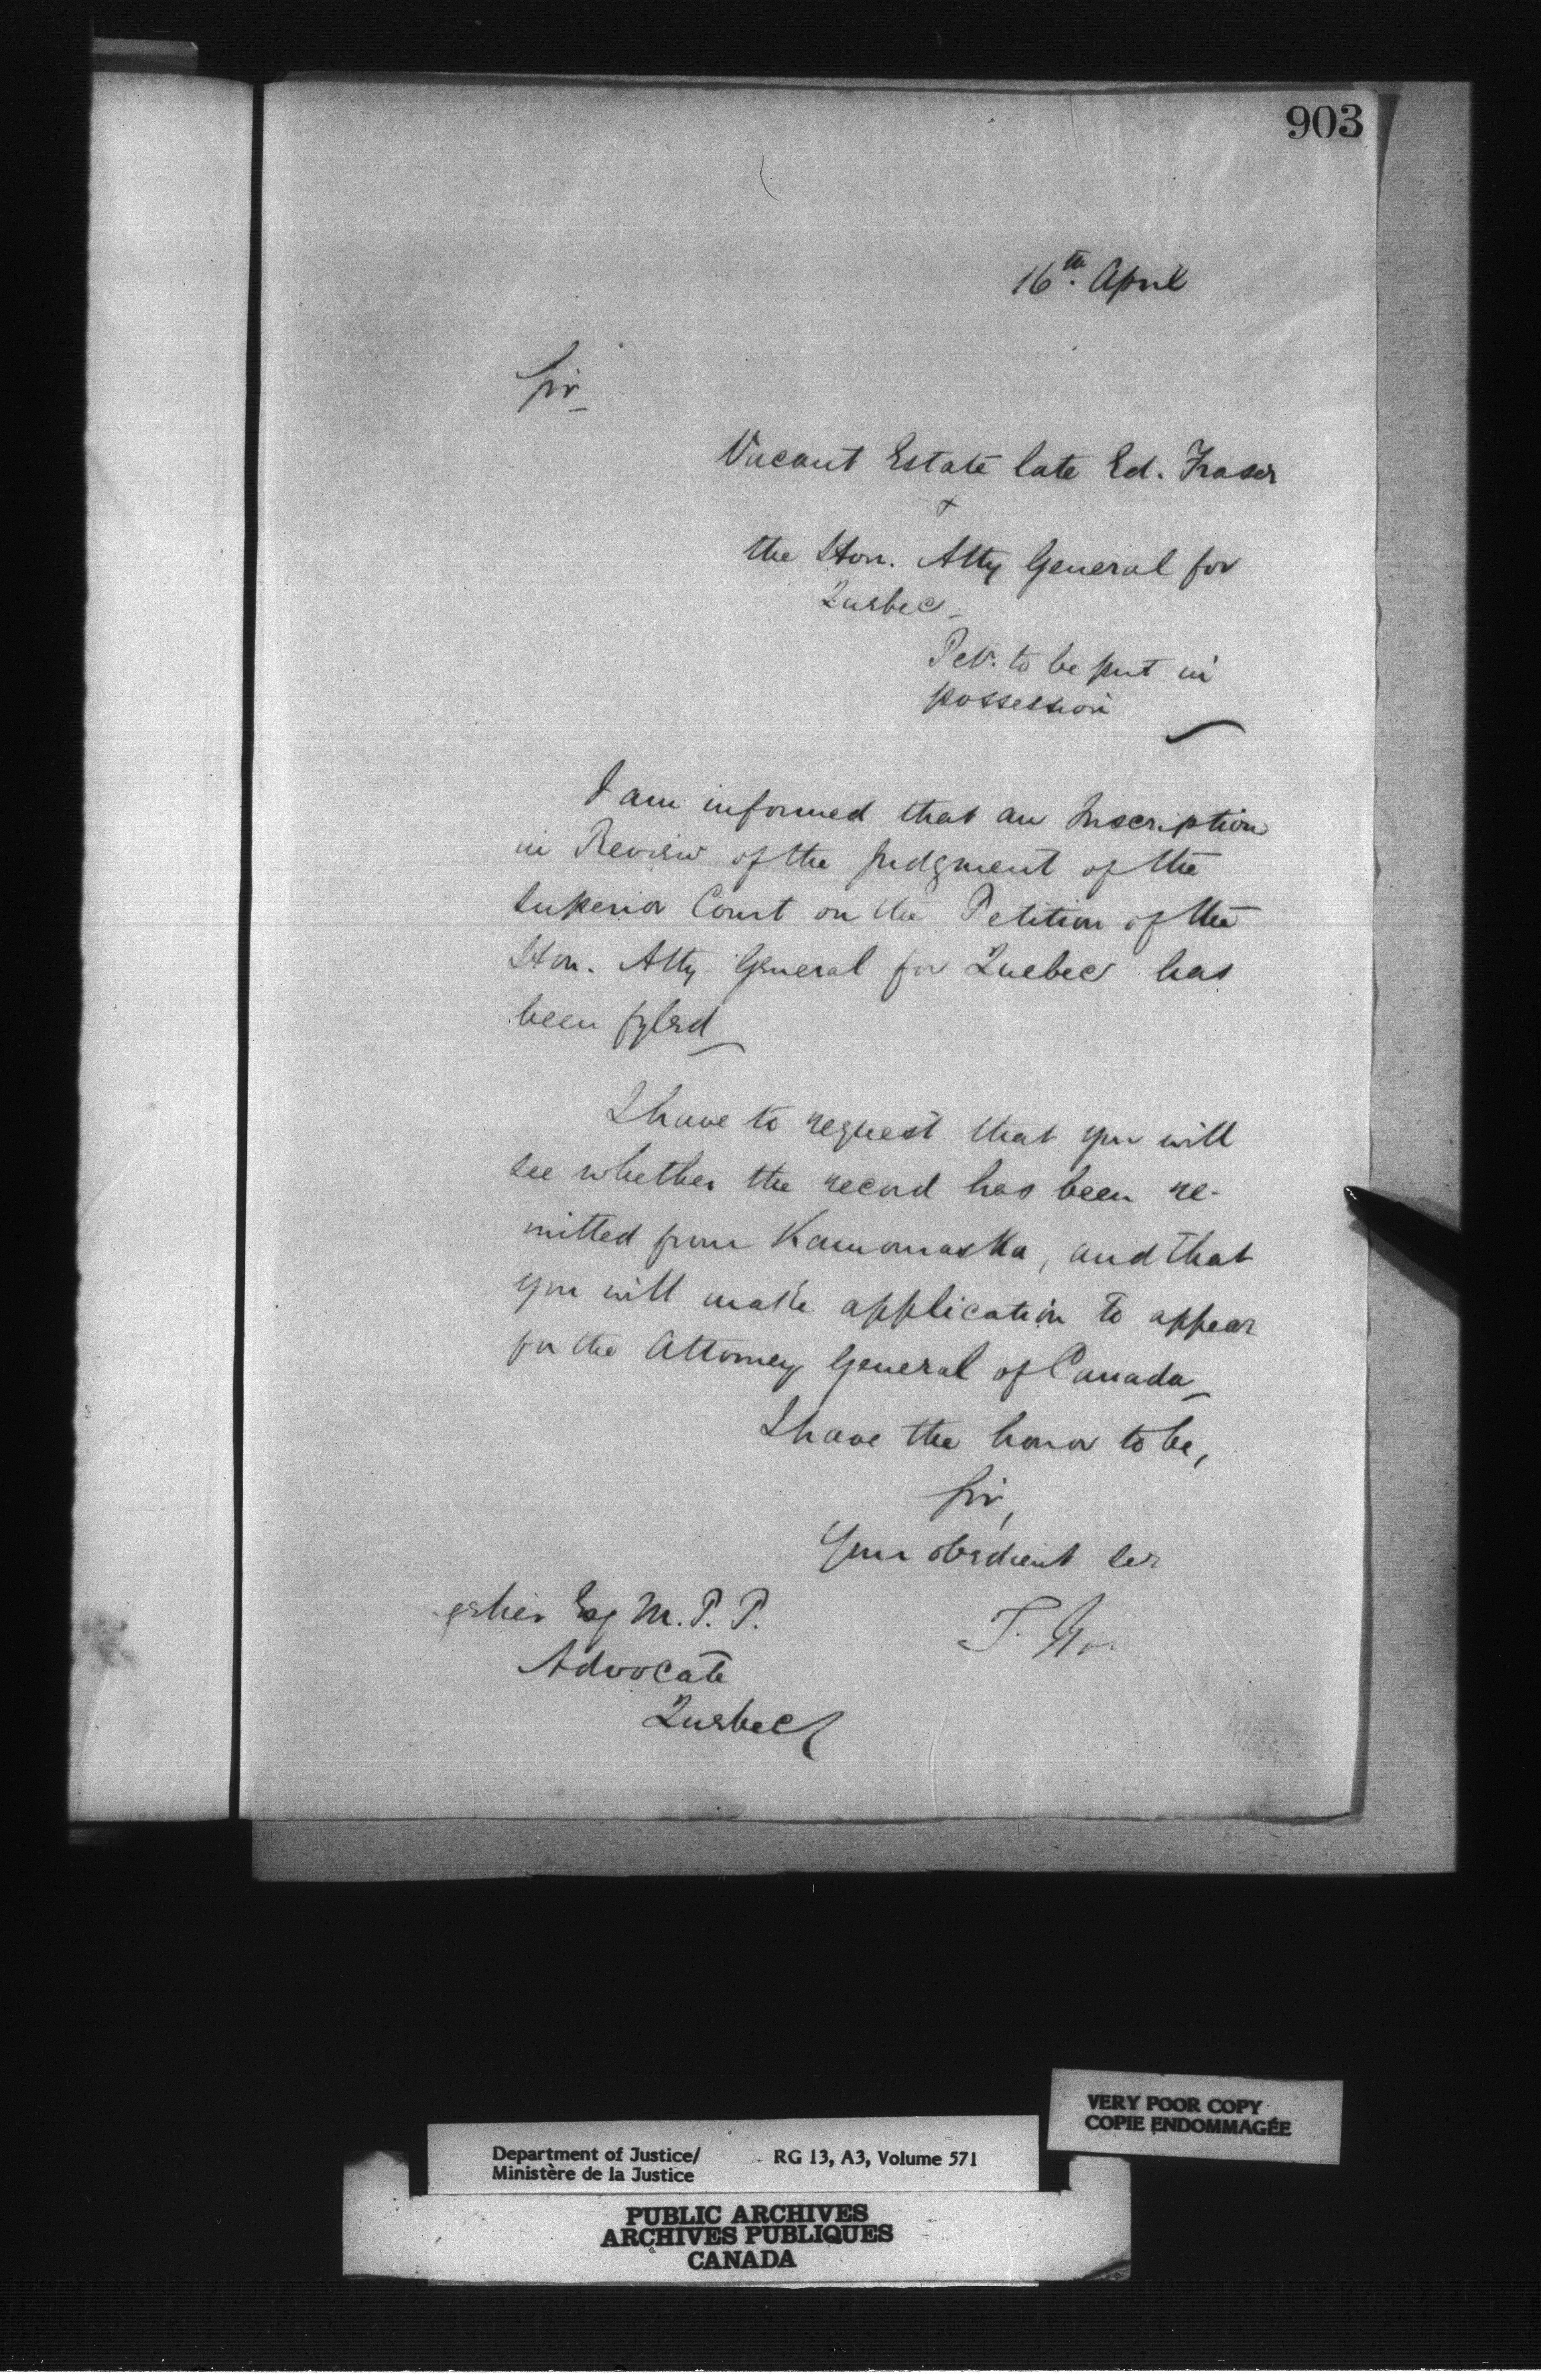 903
16th. April
Sir
Vacant Estate late Ed. Fraser
&
the Hon. Atty General for
Quebec
Pet. to be put in
possession
I am informed that an Inscription
in Review of the judgment of the
Superior Court on the Petition of the
Hon. Atty General for Quebec has
been fyled
I have to request that you will
see whether the record has been re-
mitted from Kamouraska, and that
you will make application to appear
for the Attorney General of Canada
I have the honor to be,
Sir,
Your obedient ser
Esq M. P. P.
Advocate
Quebec
VERY POOR COPY
COPIE ENDOMMAGÉE
Department of Justice/ RG 13, A3, Volume 571
Ministère de la Justice
PUBLIC ARCHIVES
ARCHIVES PUBLIQUES
CANADA